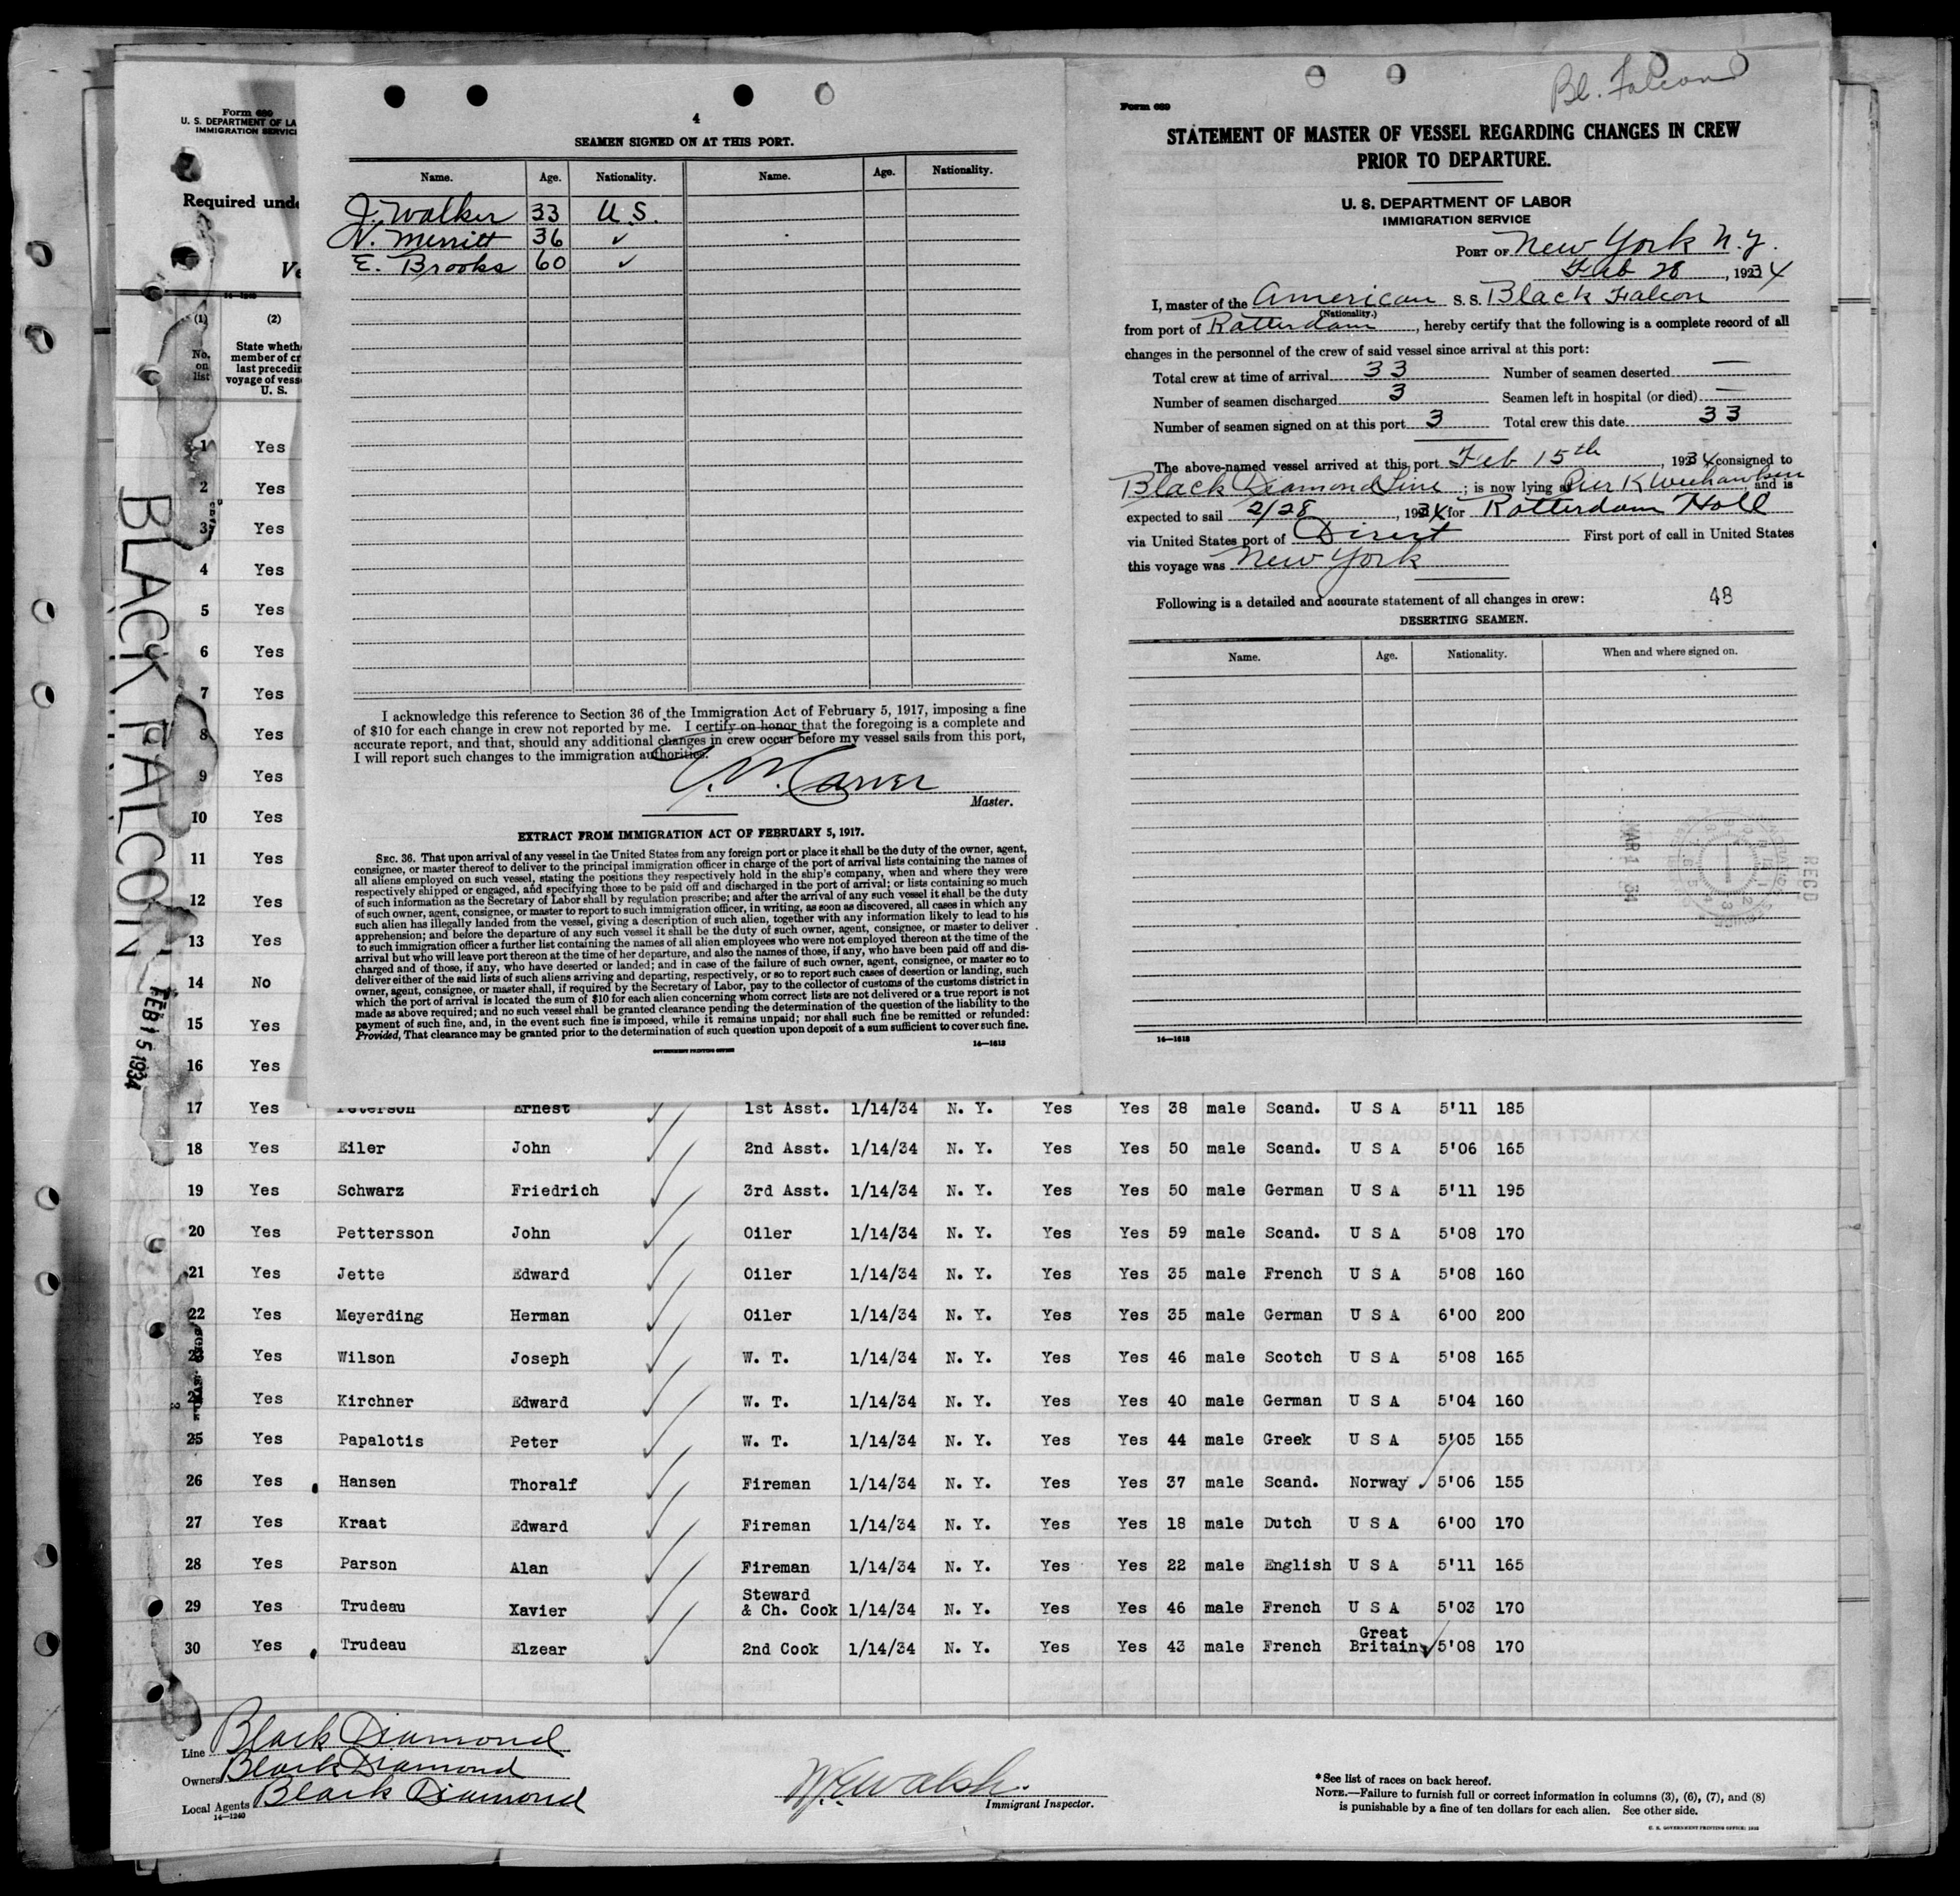 Form 680
U. S. DEPARTMENT OF LA
IMMIGRATION SERVIC
Required unde
Ve
14—1240
(1) (2)
No. on list
State wheth
member of cr
last precedin
voyage of vess
U. S.
1 Yes
2 Yes
3 Yes
4 Yes
5 Yes
6 Yes
7 Yes
8 Yes
9 Yes
10 Yes
11 Yes
12 Yes
13 Yes
14 No
15 Yes
16 Yes
BLACK FALCON
FEB 15 1934
4
SEAMEN SIGNED ON AT THIS PORT.
Name. Age. Nationality. Name. Age. Nationality.
J. Walker 33 U.S.
N. Merritt 36 ✓
E. Brooks 60 ✓
I acknowledge this reference to Section 36 of the Immigration Act of February 5, 1917, imposing a fine
of $10 for each change in crew not reported by me. I certify on honor that the foregoing is a complete and
accurate report, and that, should any additional changes in crew occur before my vessel sails from this port,
I will report such changes to the immigration authorities.
Master.
EXTRACT FROM IMMIGRATION ACT OF FEBRUARY 5, 1917.
SEC. 36. That upon arrival of any vessel in the United States from any foreign port or place it shall be the duty of the owner, agent,
consignee, or master thereof to deliver to the principal immigration officer in charge of the port of arrival lists containing the names of
all aliens employed on such vessel, stating the positions they respectively hold in the ship's company, when and where they were
respectively shipped or engaged, and specifying those to be paid off and discharged in the port of arrival; or lists containing so much
of such information as the Secretary of Labor shall by regulation prescribe; and after the arrival of any such vessel it shall be the duty
of such owner, agent, consignee, or master to report to such immigration officer, in writing, as soon as discovered, all cases in which any
such alien has illegally landed from the vessel, giving a description of such alien, together with any information likely to lead to his
apprehension; and before the departure of any such vessel it shall be the duty of such owner, agent, consignee, or master to deliver
to such immigration officer a further list containing the names of all alien employees who were not employed thereon at the time of the
arrival but who will leave port thereon at the time of her departure, and also the names of those, if any, who have been paid off and dis-
charged and of those, if any, who have deserted or landed; and in case of the failure of such owner, agent, consignee, or master so to
deliver either of the said lists of such aliens arriving and departing, respectively, or so to report such cases of desertion or landing, such
owner, agent, consignee, or master shall, if required by the Secretary of Labor, pay to the collector of customs of the customs district in
which the port of arrival is located the sum of $10 for each alien concerning whom correct lists are not delivered or a true report is not
made as above required; and no such vessel shall be granted clearance pending the determination of the question of the liability to the
payment of such fine, and, in the event such fine is imposed, while it remains unpaid; nor shall such fine be remitted or refunded:
Provided, That clearance may be granted prior to the determination of such question upon deposit of a sum sufficient to cover such fine.
GOVERNMENT PRINTING OFFICE 14—1613
Bl. Falcon
Form 689
STATEMENT OF MASTER OF VESSEL REGARDING CHANGES IN CREW
PRIOR TO DEPARTURE.
U. S. DEPARTMENT OF LABOR
IMMIGRATION SERVICE
PORT OF New York N.Y.
Feb 28, 1934
I, master of the American S. S. Black Falcon
(Nationality.)
from port of Rotterdam, hereby certify that the following is a complete record of all
changes in the personnel of the crew of said vessel since arrival at this port:
Total crew at time of arrival 33 Number of seamen deserted —
Number of seamen discharged 3 Seamen left in hospital (or died) —
Number of seamen signed on at this port 3 Total crew this date 33
The above-named vessel arrived at this port Feb 15th, 1934 consigned to
Black Diamond Line; is now lying at Pier K Weehawken and is
expected to sail 2/28, 1934 for Rotterdam Holl
via United States port of Direct First port of call in United States
this voyage was New York
Following is a detailed and accurate statement of all changes in crew: 48
DESERTING SEAMEN.
Name. Age. Nationality. When and where signed on.
RECD
MAR 1 34
14—1613
17 Yes Peterson Ernest 1st Asst. 1/14/34 N. Y. Yes Yes 38 male Scand. U S A 5'11 185
18 Yes Eiler John 2nd Asst. 1/14/34 N. Y. Yes Yes 50 male Scand. U S A 5'06 165
19 Yes Schwarz Friedrich 3rd Asst. 1/14/34 N. Y. Yes Yes 50 male German U S A 5'11 195
20 Yes Pettersson John Oiler 1/14/34 N. Y. Yes Yes 59 male Scand. U S A 5'08 170
21 Yes Jette Edward Oiler 1/14/34 N. Y. Yes Yes 35 male French U S A 5'08 160
22 Yes Meyerding Herman Oiler 1/14/34 N. Y. Yes Yes 35 male German U S A 6'00 200
23 Yes Wilson Joseph W. T. 1/14/34 N. Y. Yes Yes 46 male Scotch U S A 5'08 165
24 Yes Kirchner Edward W. T. 1/14/34 N. Y. Yes Yes 40 male German U S A 5'04 160
25 Yes Papalotis Peter W. T. 1/14/34 N. Y. Yes Yes 44 male Greek U S A 5'05 155
26 Yes Hansen Thoralf Fireman 1/14/34 N. Y. Yes Yes 37 male Scand. Norway 5'06 155
27 Yes Kraat Edward Fireman 1/14/34 N. Y. Yes Yes 18 male Dutch U S A 6'00 170
28 Yes Parson Alan Fireman 1/14/34 N. Y. Yes Yes 22 male English U S A 5'11 165
29 Yes Trudeau Xavier Steward & Ch. Cook 1/14/34 N. Y. Yes Yes 46 male French U S A 5'03 170
30 Yes Trudeau Elzear 2nd Cook 1/14/34 N. Y. Yes Yes 43 male French Great Britain 5'08 170
Line Black Diamond
Owners Black Diamond
Local Agents Black Diamond
14—1240
W. E. Walsh.
Immigrant Inspector.
* See list of races on back hereof.
NOTE.—Failure to furnish full or correct information in columns (3), (6), (7), and (8)
is punishable by a fine of ten dollars for each alien. See other side.
U. S. GOVERNMENT PRINTING OFFICE: